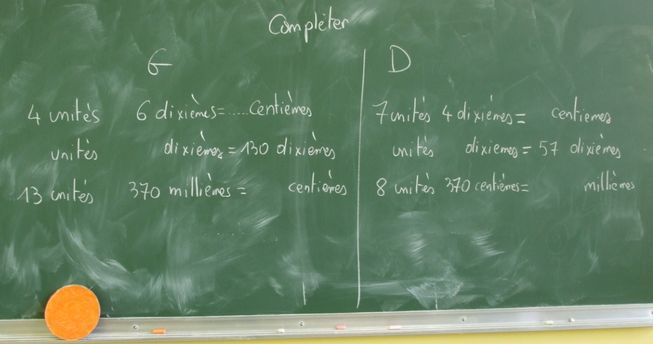 Compléter
G
4 unités 6 dixièmes=.....centièmes
unités dixièmes = 130 dixièmes
13 unités 370 millièmes = centièmes
D
7 unités 4 dixièmes = centièmes
unités dixièmes = 57 dixièmes
8 unités 370 centièmes = millièmes